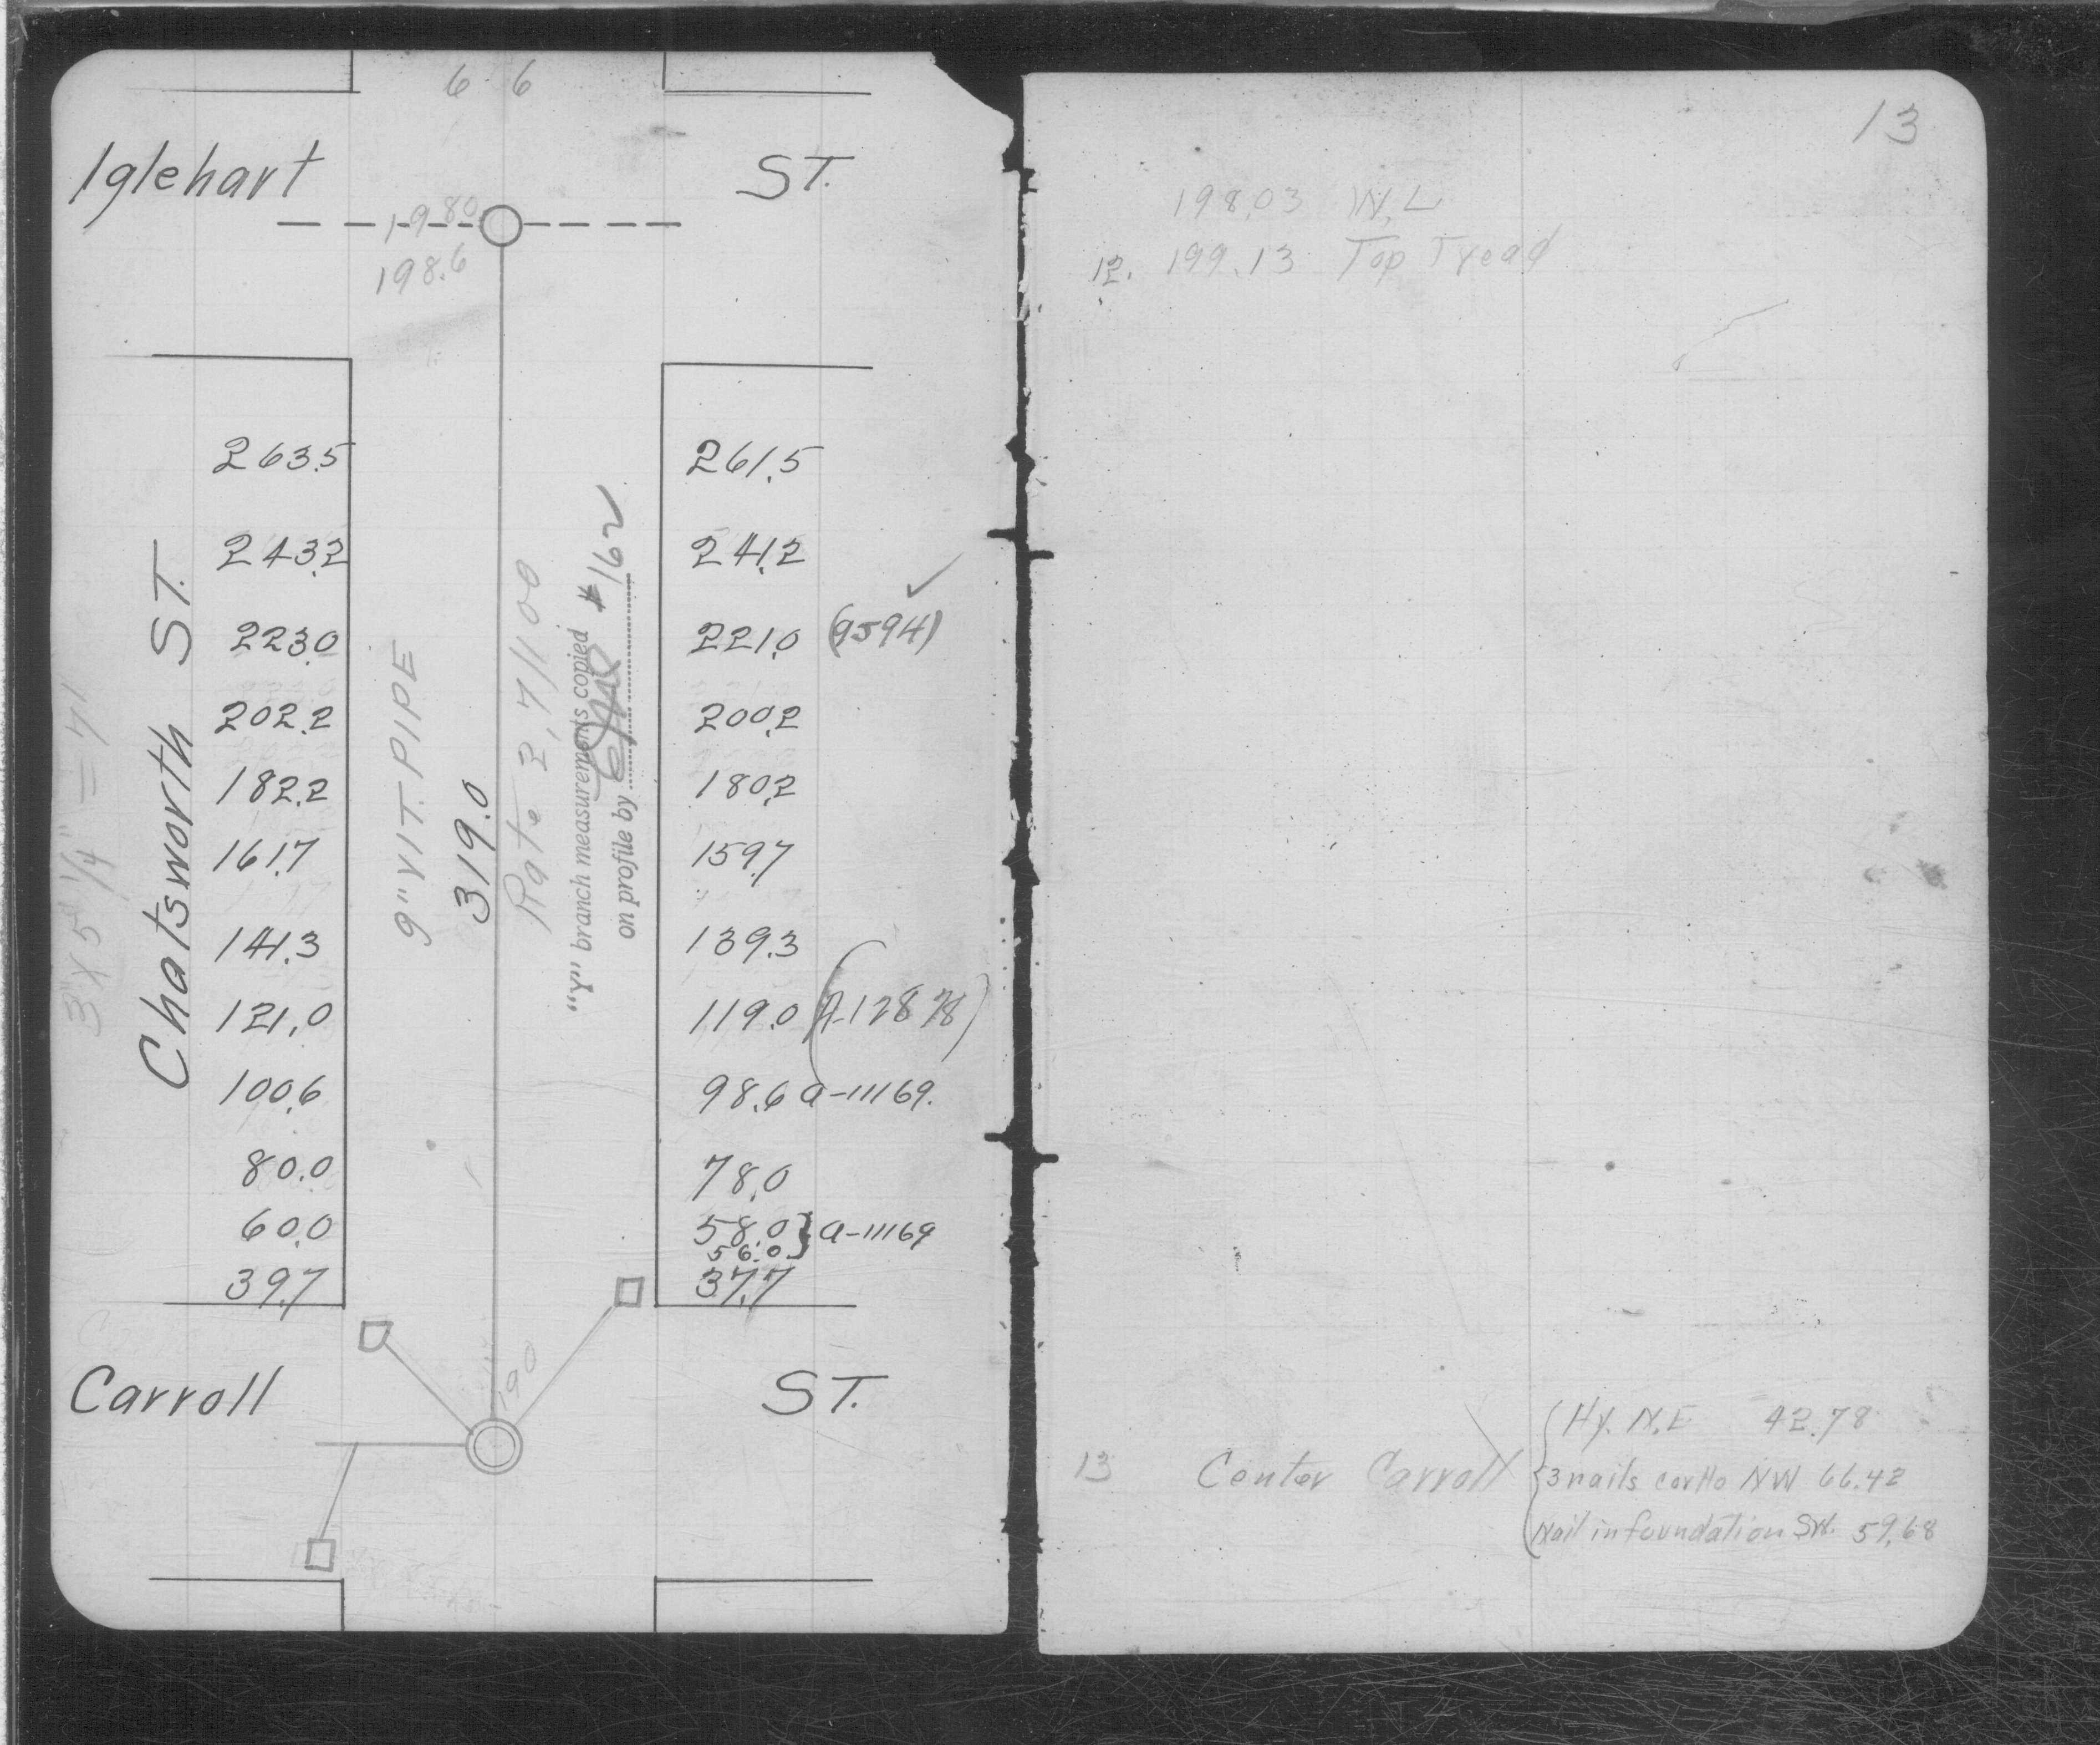 66
Iglehart ST.
198.0
198.6
263.5 261.5
243.2 241.2
223.0 221.0 (9594)
202.2 200.2
182.2 180.2
161.7 159.7
141.3 139.3
121.0 119.0 (A-12878)
100.6 98.6 a-11169.
80.0 78.0
60.0 58.0 } a-11169
56.0
39.7 37.7
3" X 5 1/4" = 71
Chatsworth ST.
9" VIT. PIPE
319.0
Rate 2,7/100
"Y" branch measurements copied #162
on profile by
190
Carroll ST.
13
198.03 W.L
12. 199.13 Top Tread
Hy. N.E 42.78
13 Center Carroll 3 nails cor Ho NW 66.42
Nail in foundation SW. 59.68